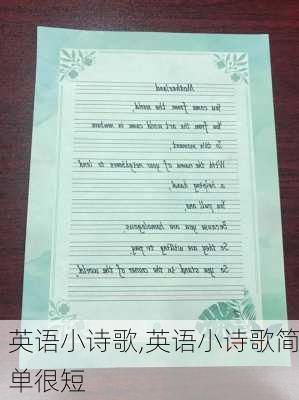 Motherland
You come from the world,
You from the art world come in
To this moment,
With the name of your neighbours to lend
a helping hand,
You pull any,
Because you are homologous
So they are willing to pay,
So you stand in the corner of the world,
英语小诗歌,英语小诗歌简
单很短